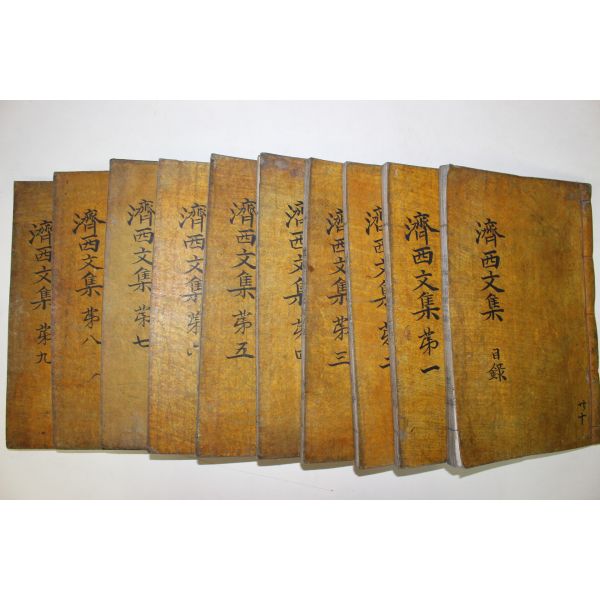 濟西文集 目錄
卄十
濟西文集 苐一
濟西文集 苐二
濟西文集 苐三
濟西文集 苐四
濟西文集 苐五
濟西文集 苐六
濟西文集 苐七
濟西文集 苐八
濟西文集 苐九